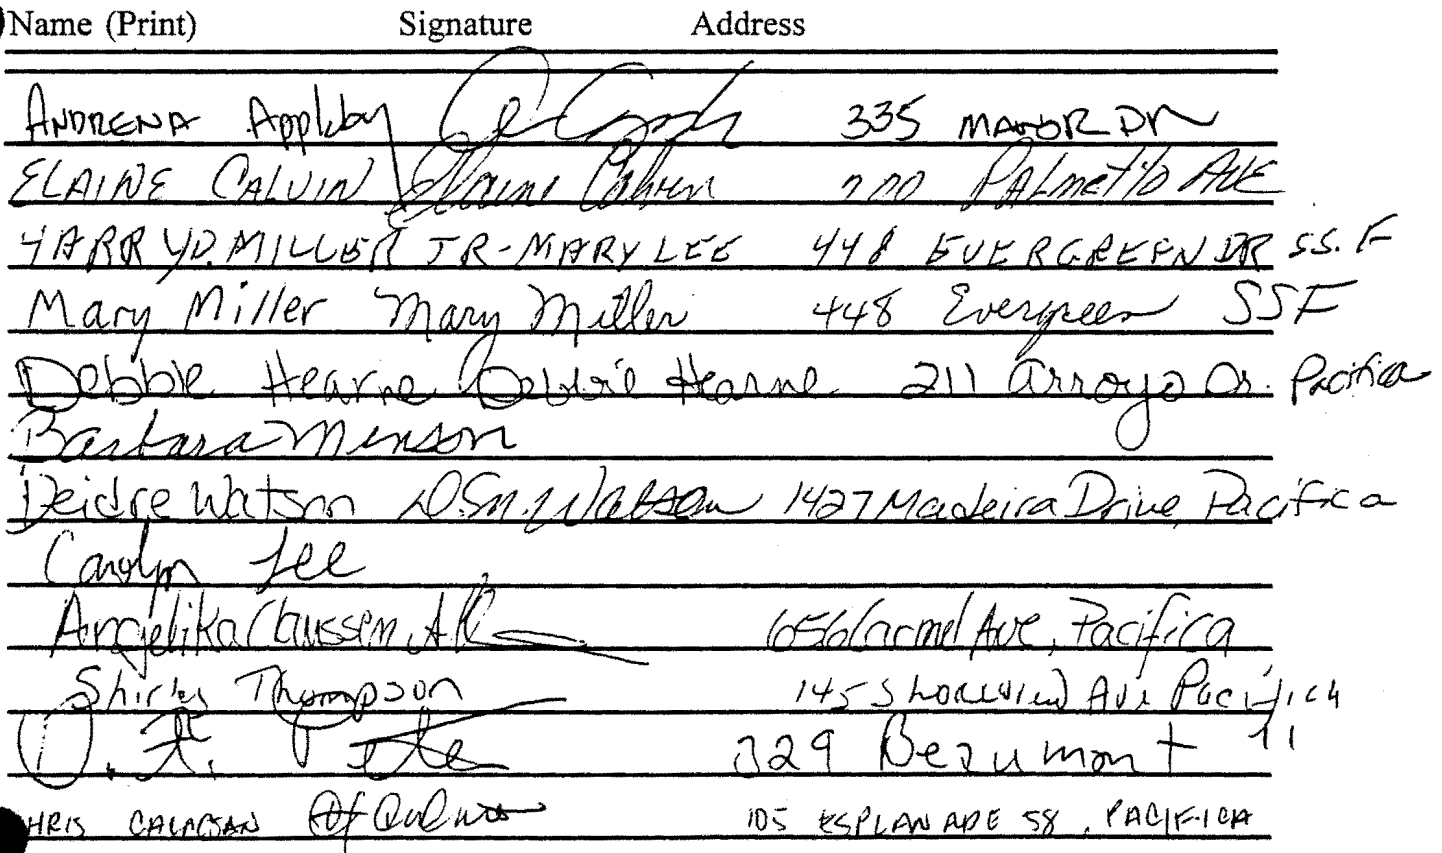 Name (Print) Signature Address
ANDRENA Appleby 335 MANOR Dr
ELAINE CALVIN Elaine Calvin 700 PALmetto AVE
HARRY D. MILLER JR - MARY LEE 448 EVERGREEN DR SS. F
Mary Miller Mary Miller 448 Evergreen SSF
Debbie Hearne Debbie Hearne 211 Arroyo Dr. Pacifica
Barbara Minson
Deidre Watson D.Sm. Watson 1427 Madeira Drive, Pacifica
Carolyn Lee
Angelika Claussen 656 Carmel Ave, Pacifica
Shirley Thompson 145 Shoreview Ave Pacifica
329 Beaumont "
CHRIS 105 ESPLANADE 58, PACIFICA